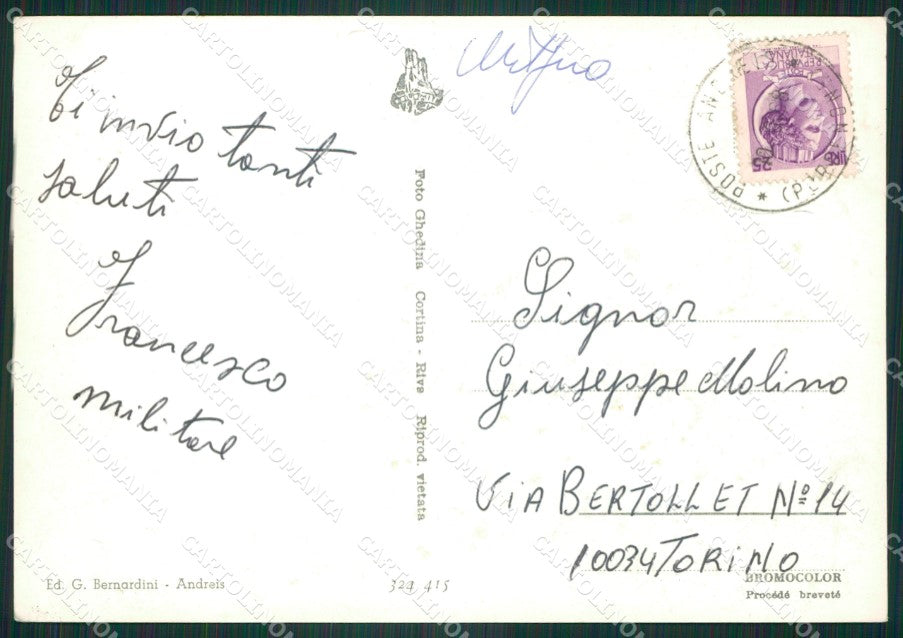 Ti invio tanti
saluti
Francesco
militare
Ed. G. Bernardini - Andreis
Foto Ghedina Cortina - Rivs Riprod. vietata
324 415
POSTE
LIRE
25
REPVBBLICA
ITALIANA
Signor
Giuseppe Molino
VIA BERTOLLET Nº 14
10034 TORINO
BROMOCOLOR
Procédé breveté
CARTOLINOMANIA